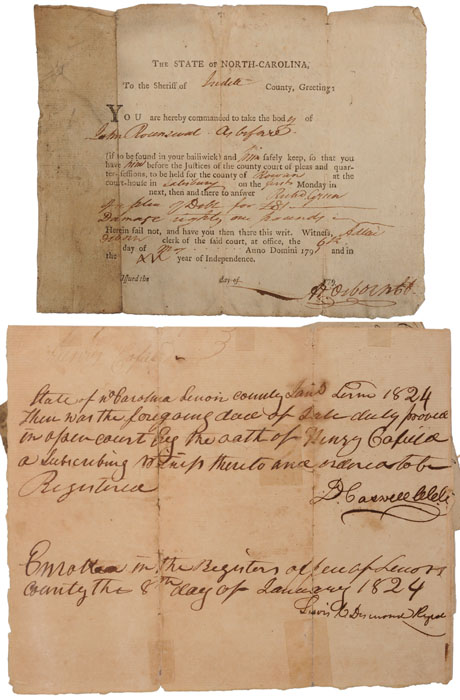 THE STATE OF NORTH-CAROLINA,
To the Sheriff of Iredell County, Greeting:
YOU are hereby commanded to take the body of
John
(if to be found in your bailiwick) and him safely keep, so that you
have him before the Justices of the county court of pleas and quar-
ter-sessions, to be held for the county of Rowan at the
court-house in Salisbury on the first Monday in
next, then and there to answer
plea of Debt for
Damage eighty one pounds
Herein fail not, and have you then there this writ. Witness,
Osborn clerk of the said court, at office, the
day of Anno Domini 179 and in
the XV year of Independence.
Issued the day of
Osborn
State of No Carolina Lenoir county Term 1824
Then was the foregoing deed of Sale duly proved
in open court by the oath of Henry
a Subscribing Witness thereto and ordered to be
Registered
D Caswell
Enrolled in the Registers office of Lenoir
county the 8th day of January 1824
Desmond